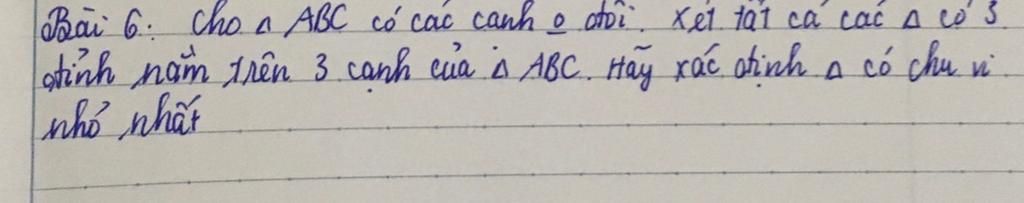 Bài 6: Cho △ ABC có các cạnh o đổi. Xét tất cả các △ có 3
đỉnh nằm trên 3 cạnh của △ ABC. Hãy xác định △ có chu vi
nhỏ nhất